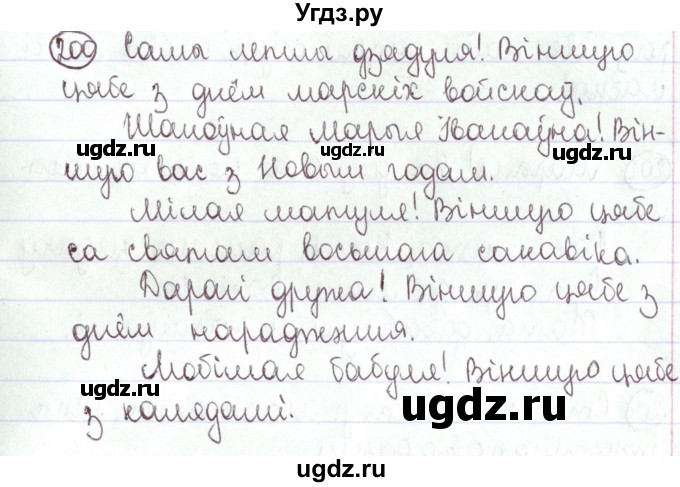 Угдз.ру
200 Самы лепшы дзядуля! Віншую
цябе з днём марскіх войскаў.
Шаноўная Марыя Іванаўна! Він-
ugdz.ru ugdz.ru
шую вас з Новым годам.
Мілая матуля! Віншую цябе
ugdz.ru
са святам восьмага сакавіка.
Дарагі дружа! Віншую цябе з
ugdz.ru
днём нараджэння.
Любімая бабуля! Віншую цябе
ugdz.ru ugdz.ru
з калядамі.
ugdz.ru